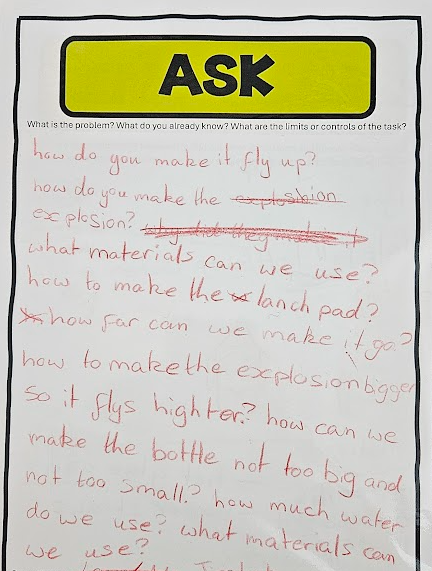 ASK
What is the problem? What do you already know? What are the limits or controls of the task?
how do you make it fly up?
how do you make the
explosion?
what materials can we use?
how to make the lanch pad?
how far can we make it go?
how to make the explosion bigger
so it flys highter? how can we
make the bottle not too big and
not too small? how much water
do we use? what materials can
we use?